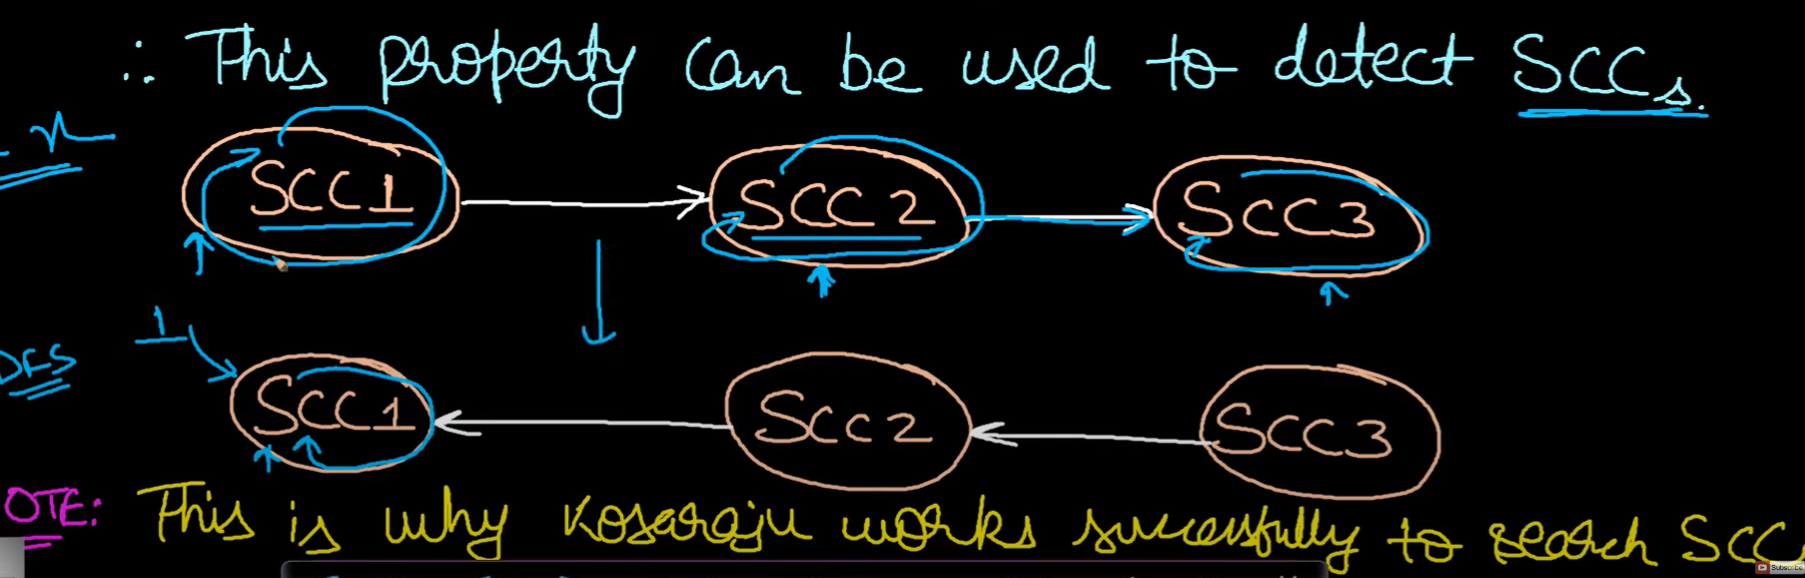 ∴ This property can be used to detect SCCs.
SCC1 SCC2 SCC3
1
DFS
SCC1 SCC2 SCC3
OTE: This is why Kosaraju works successfully to search SCC
Subscribe